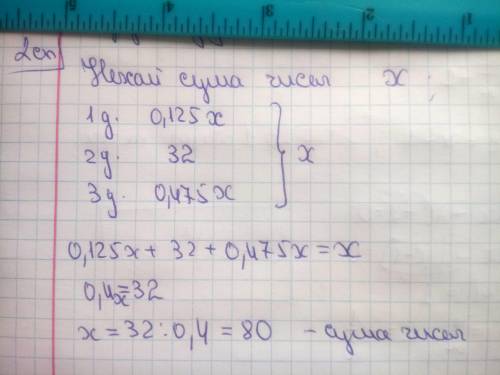 5 4 3 2 1
2сп
Нехай сума чисел x
1д. 0,125x
2д. 32
3д. 0,475x
x
0,125x + 32 + 0,475x = x
0,4x = 32
x = 32 : 0,4 = 80 - сума чисел